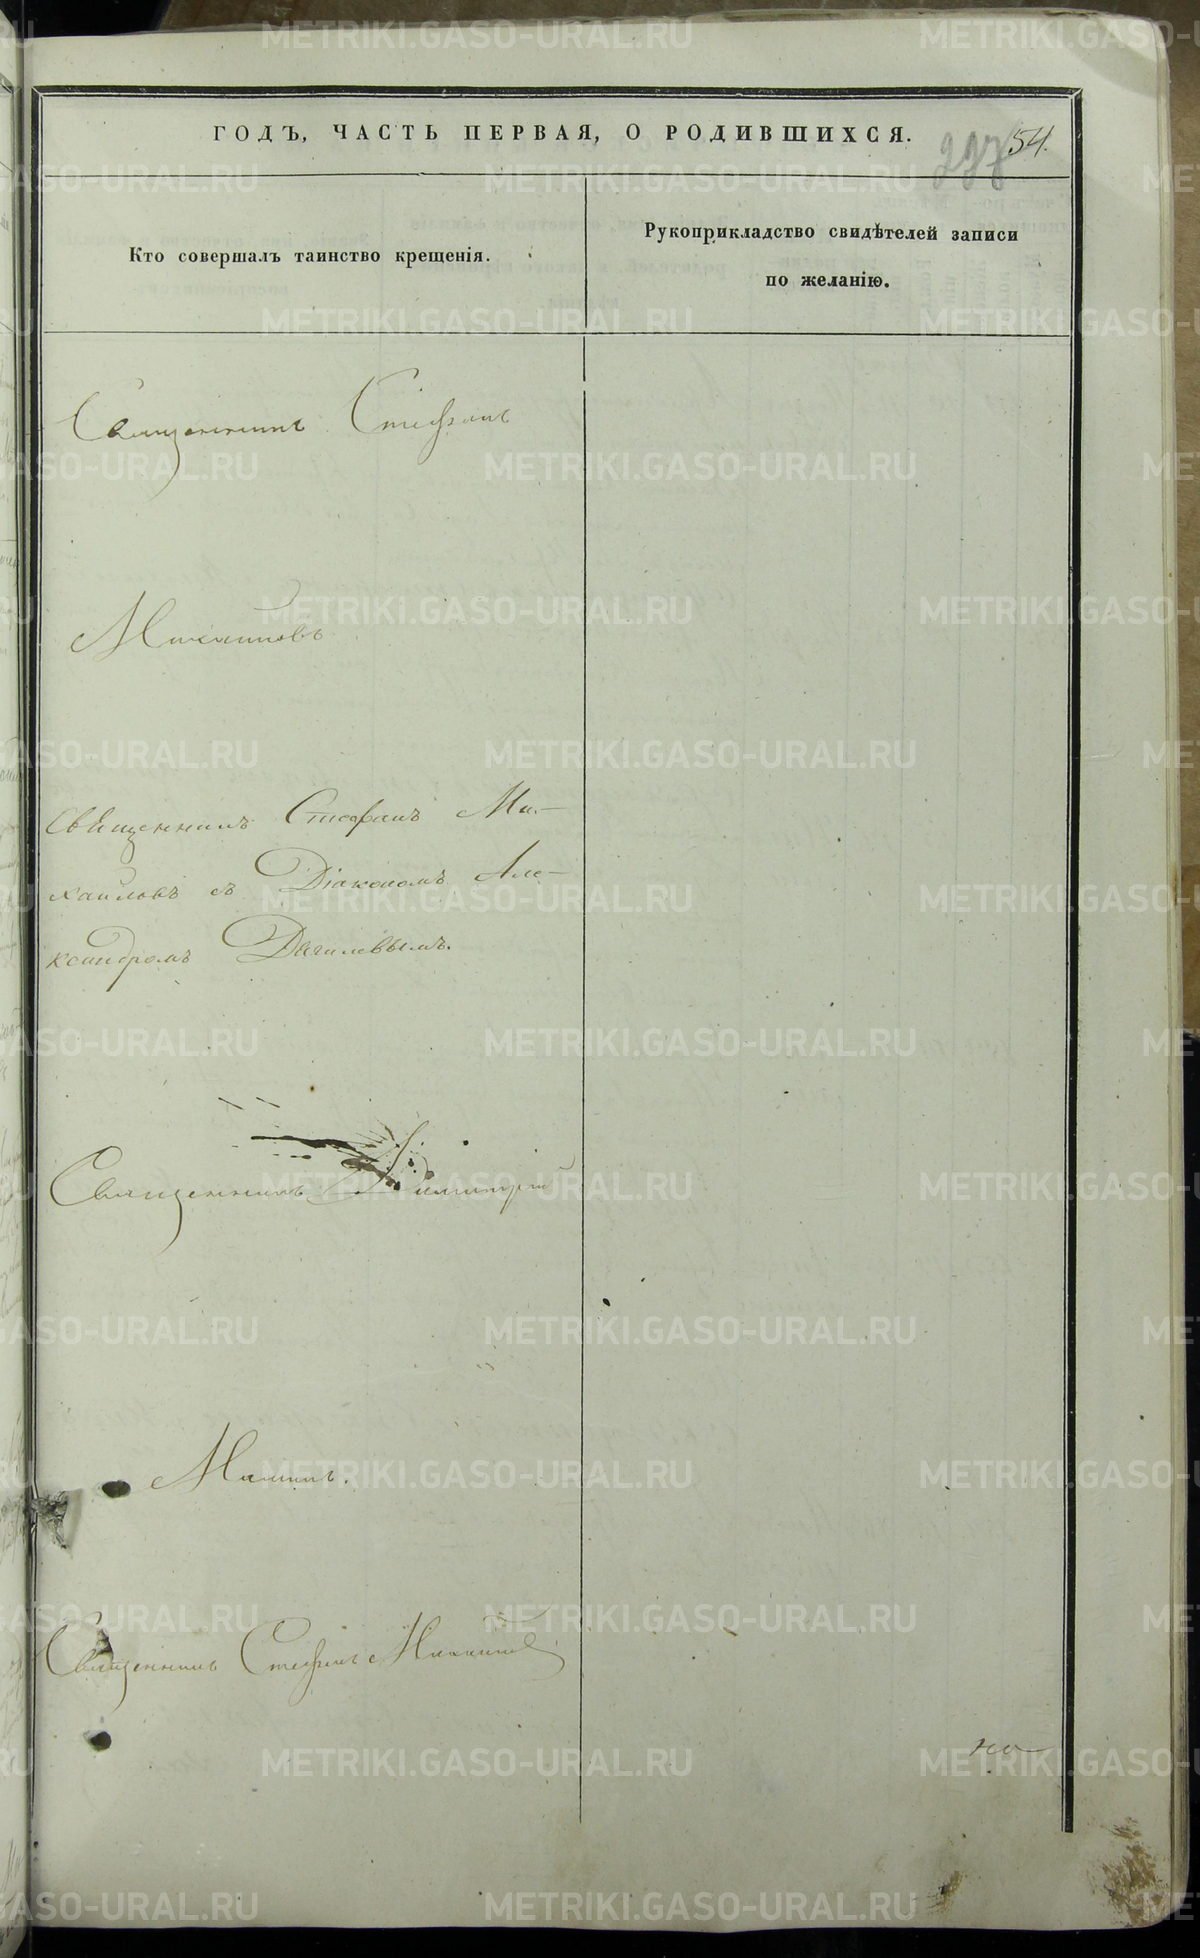 ГОДЪ, ЧАСТЬ ПЕРВАЯ, О РОДИВШИХСЯ.
227 54.
Кто совершалъ таинство крещенія.
Рукоприкладство свидѣтелей записи
по желанію.
Священникъ Стефанъ
Михайловъ
Священникъ Стефанъ Ми-
хайловъ съ Діакономъ Але-
ксандромъ Дягилевымъ.
Священникъ Димитрій
Маминъ.
Священникъ Стефанъ Михайлов
METRIKI.GASO-URAL.RU